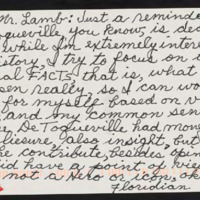 Mr. Lamb: Just a reminder
queville you know, is dea
while I'm extremely intere
istory, I try to focus on
al FACTS, that is, what
sen really, so I can wo
for myself based on v
and my common sen
e. DeToqueville had mone
leisure, also insight, but
he contribute, besides opin
id have a point of vie
not a Hero or icon ok
Floridian